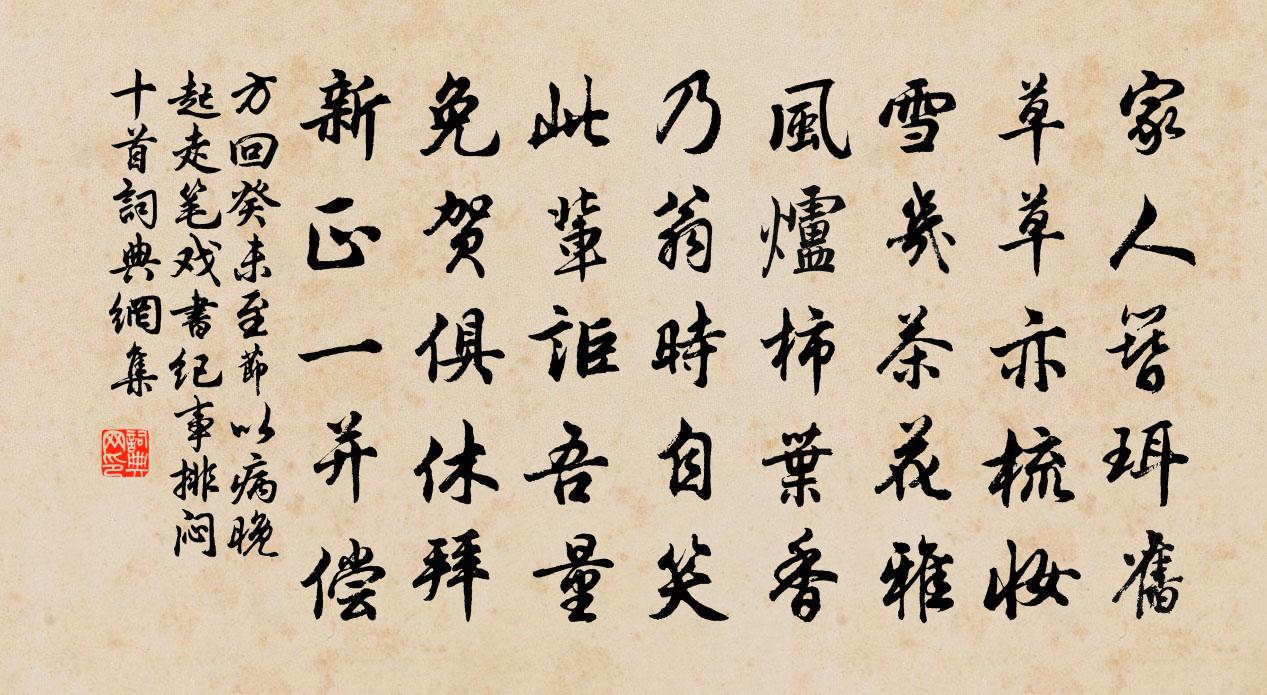 家人簪珥舊
草草亦梳妆
雪幾茶花雅
風爐柿葉香
乃翁時自笑
此輩詎吾量
免贺俱休拜
新正一并偿
方回癸未至節以病晚
起走笔戏書纪事排闷
十首詞典網集
詞典网印